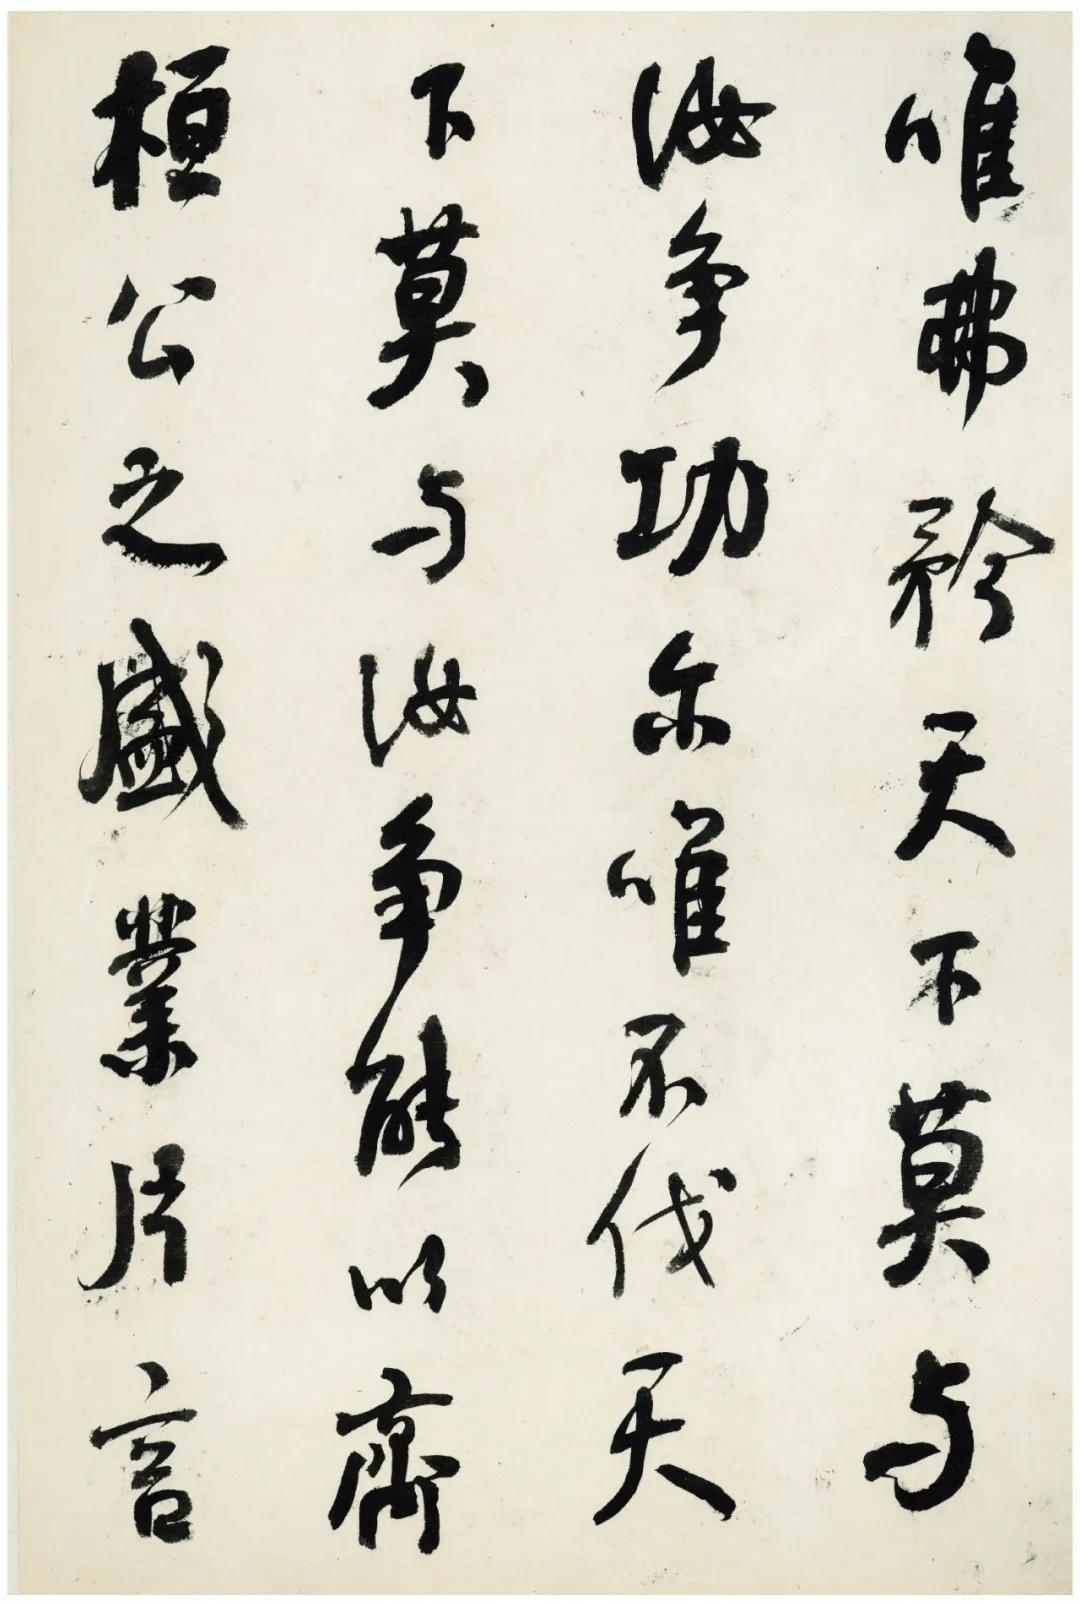 唯弗矜天下莫与
汝争功尔唯不伐天
下莫与汝争能以齊
桓公之盛業片言